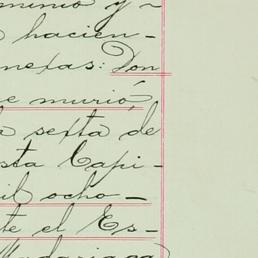 minio y -
hacien-
netas: Don
e murió,
a sexta de
sta Capi-
il ocho-
te el Es-
Madariaga